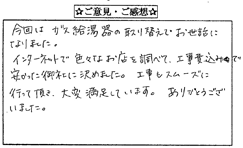 ☆ご意見・ご感想☆
今回は ガス給湯器の取り替えでお世話に
なりました。
インターネットで色々なお店を調べて、工事費込みで
安かった御社に決めました。工事もスムーズに
行って頂き、大変満足しています。ありがとうござ
いました。